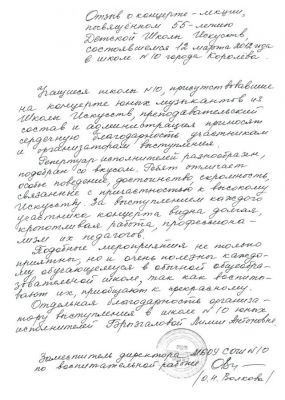 Отзыв о концерте-лекции,
посвящённом 55-летию
Детской Школы Искусств,
состоявшемся 12 марта 2012 года
в школе №10 города Королева.
Учащиеся школы №10, присутствовавшие
на концерте юных музыкантов из
Школы Искусств, преподавательский
состав и администрация приносят
сердечную благодарность участникам
и организаторам выступления.
Репертуар исполнителей разнообразен,
подобран со вкусом. Ребят отличает
особое поведение, достоинство скромность,
связанные с причастностью к высокому
Искусству. За выступлением каждого
участника концерта видна долгая,
кропотливая работа профессиона-
лизм их педагогов.
Подобные мероприятия не только
приятны, но и очень полезны каждо-
му обучающемуся в обычной общеобра-
зовательной школе, так как воспиты-
вают их, приобщают к прекрасному.
Отдельная благодарность организа-
тору выступления в школе №10 юных
исполнителей Лилии Антоновне
Заместитель директора МБОУ СОШ №10
по воспитательной работе
/О.Н. Волкова/